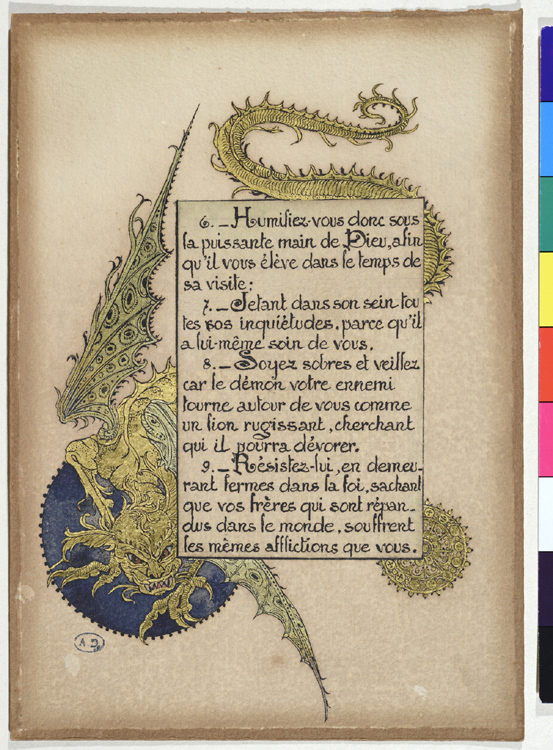 6. _ Humiliez-vous donc sous
la puissante main de Dieu, afin
qu'il vous élève dans le temps de
sa visite:
7. _ Jetant dans son sein tou
tes vos inquiétudes, parce qu'il
a lui-même soin de vous.
8. _ Soyez sobres et veillez
car le démon votre ennemi
tourne autour de vous comme
un lion rugissant, cherchant
qui il pourra dévorer.
9. _ Résistez-lui, en demeu-
rant fermes dans la foi, sachant
que vos frères qui sont répan-
dus dans le monde, souffrent
les mêmes afflictions que vous.